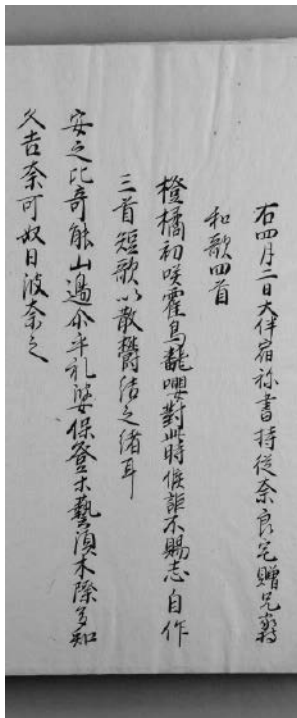 右四月二日大伴宿祢書持従奈良宅贈兄家持
和歌四首
橙橘初咲霍鳥飜嚶對此時候詎不賜志自作
三首短歌以散欝結之緒耳
安之比奇能山邊尓乎礼婆保登等藝須木際多知
久吉奈可奴日波奈之